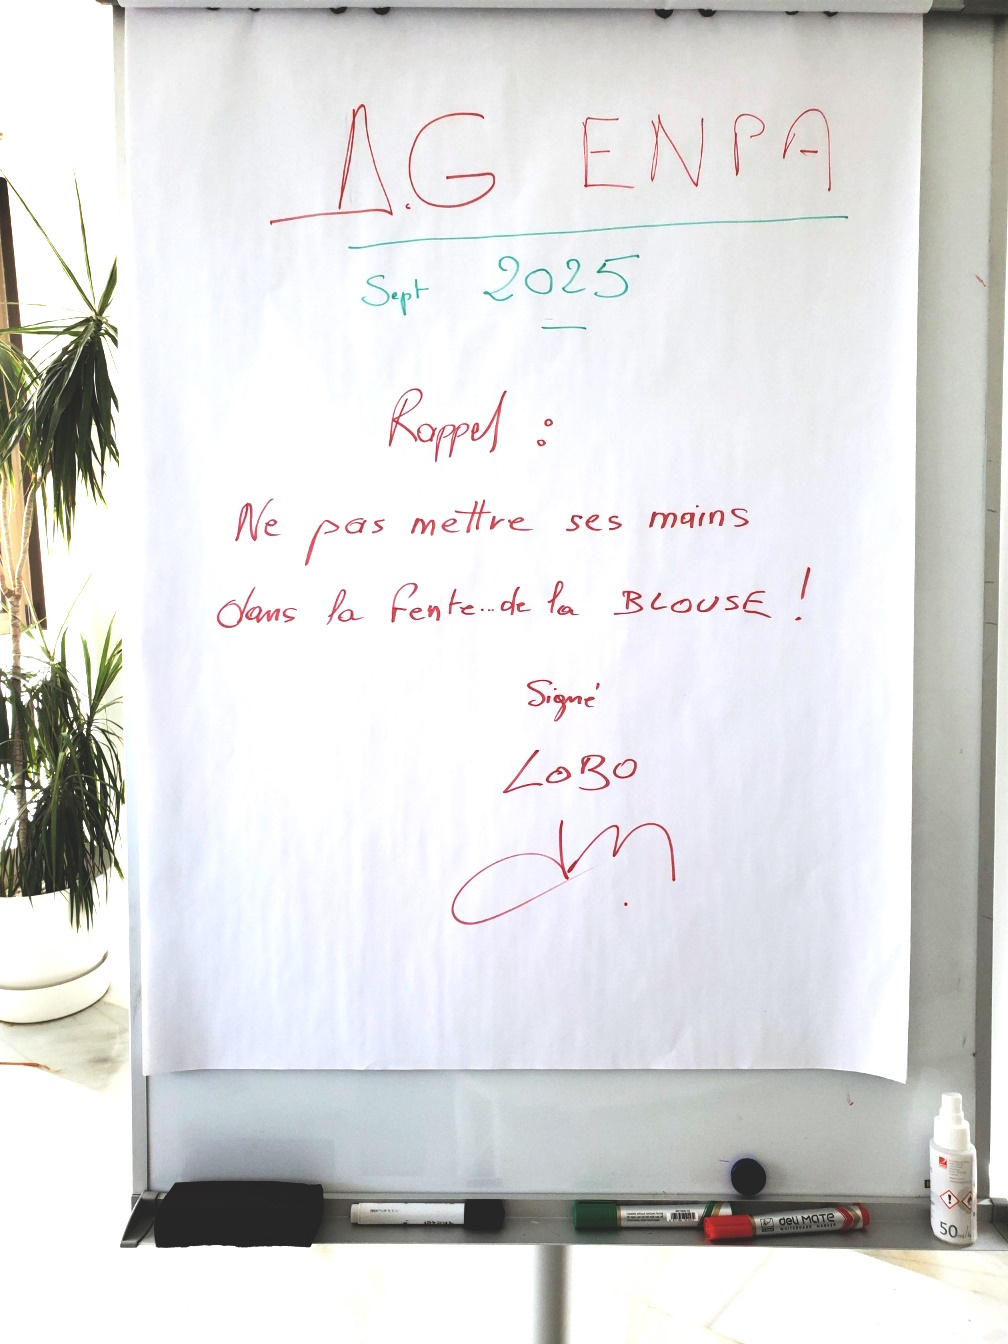 A.G ENPA
Sept 2025
Rappel :
Ne pas mettre ses mains
dans la fente...de la BLOUSE !
Signé
LOBO
deli MATE
WHITEBOARD MARKER
50